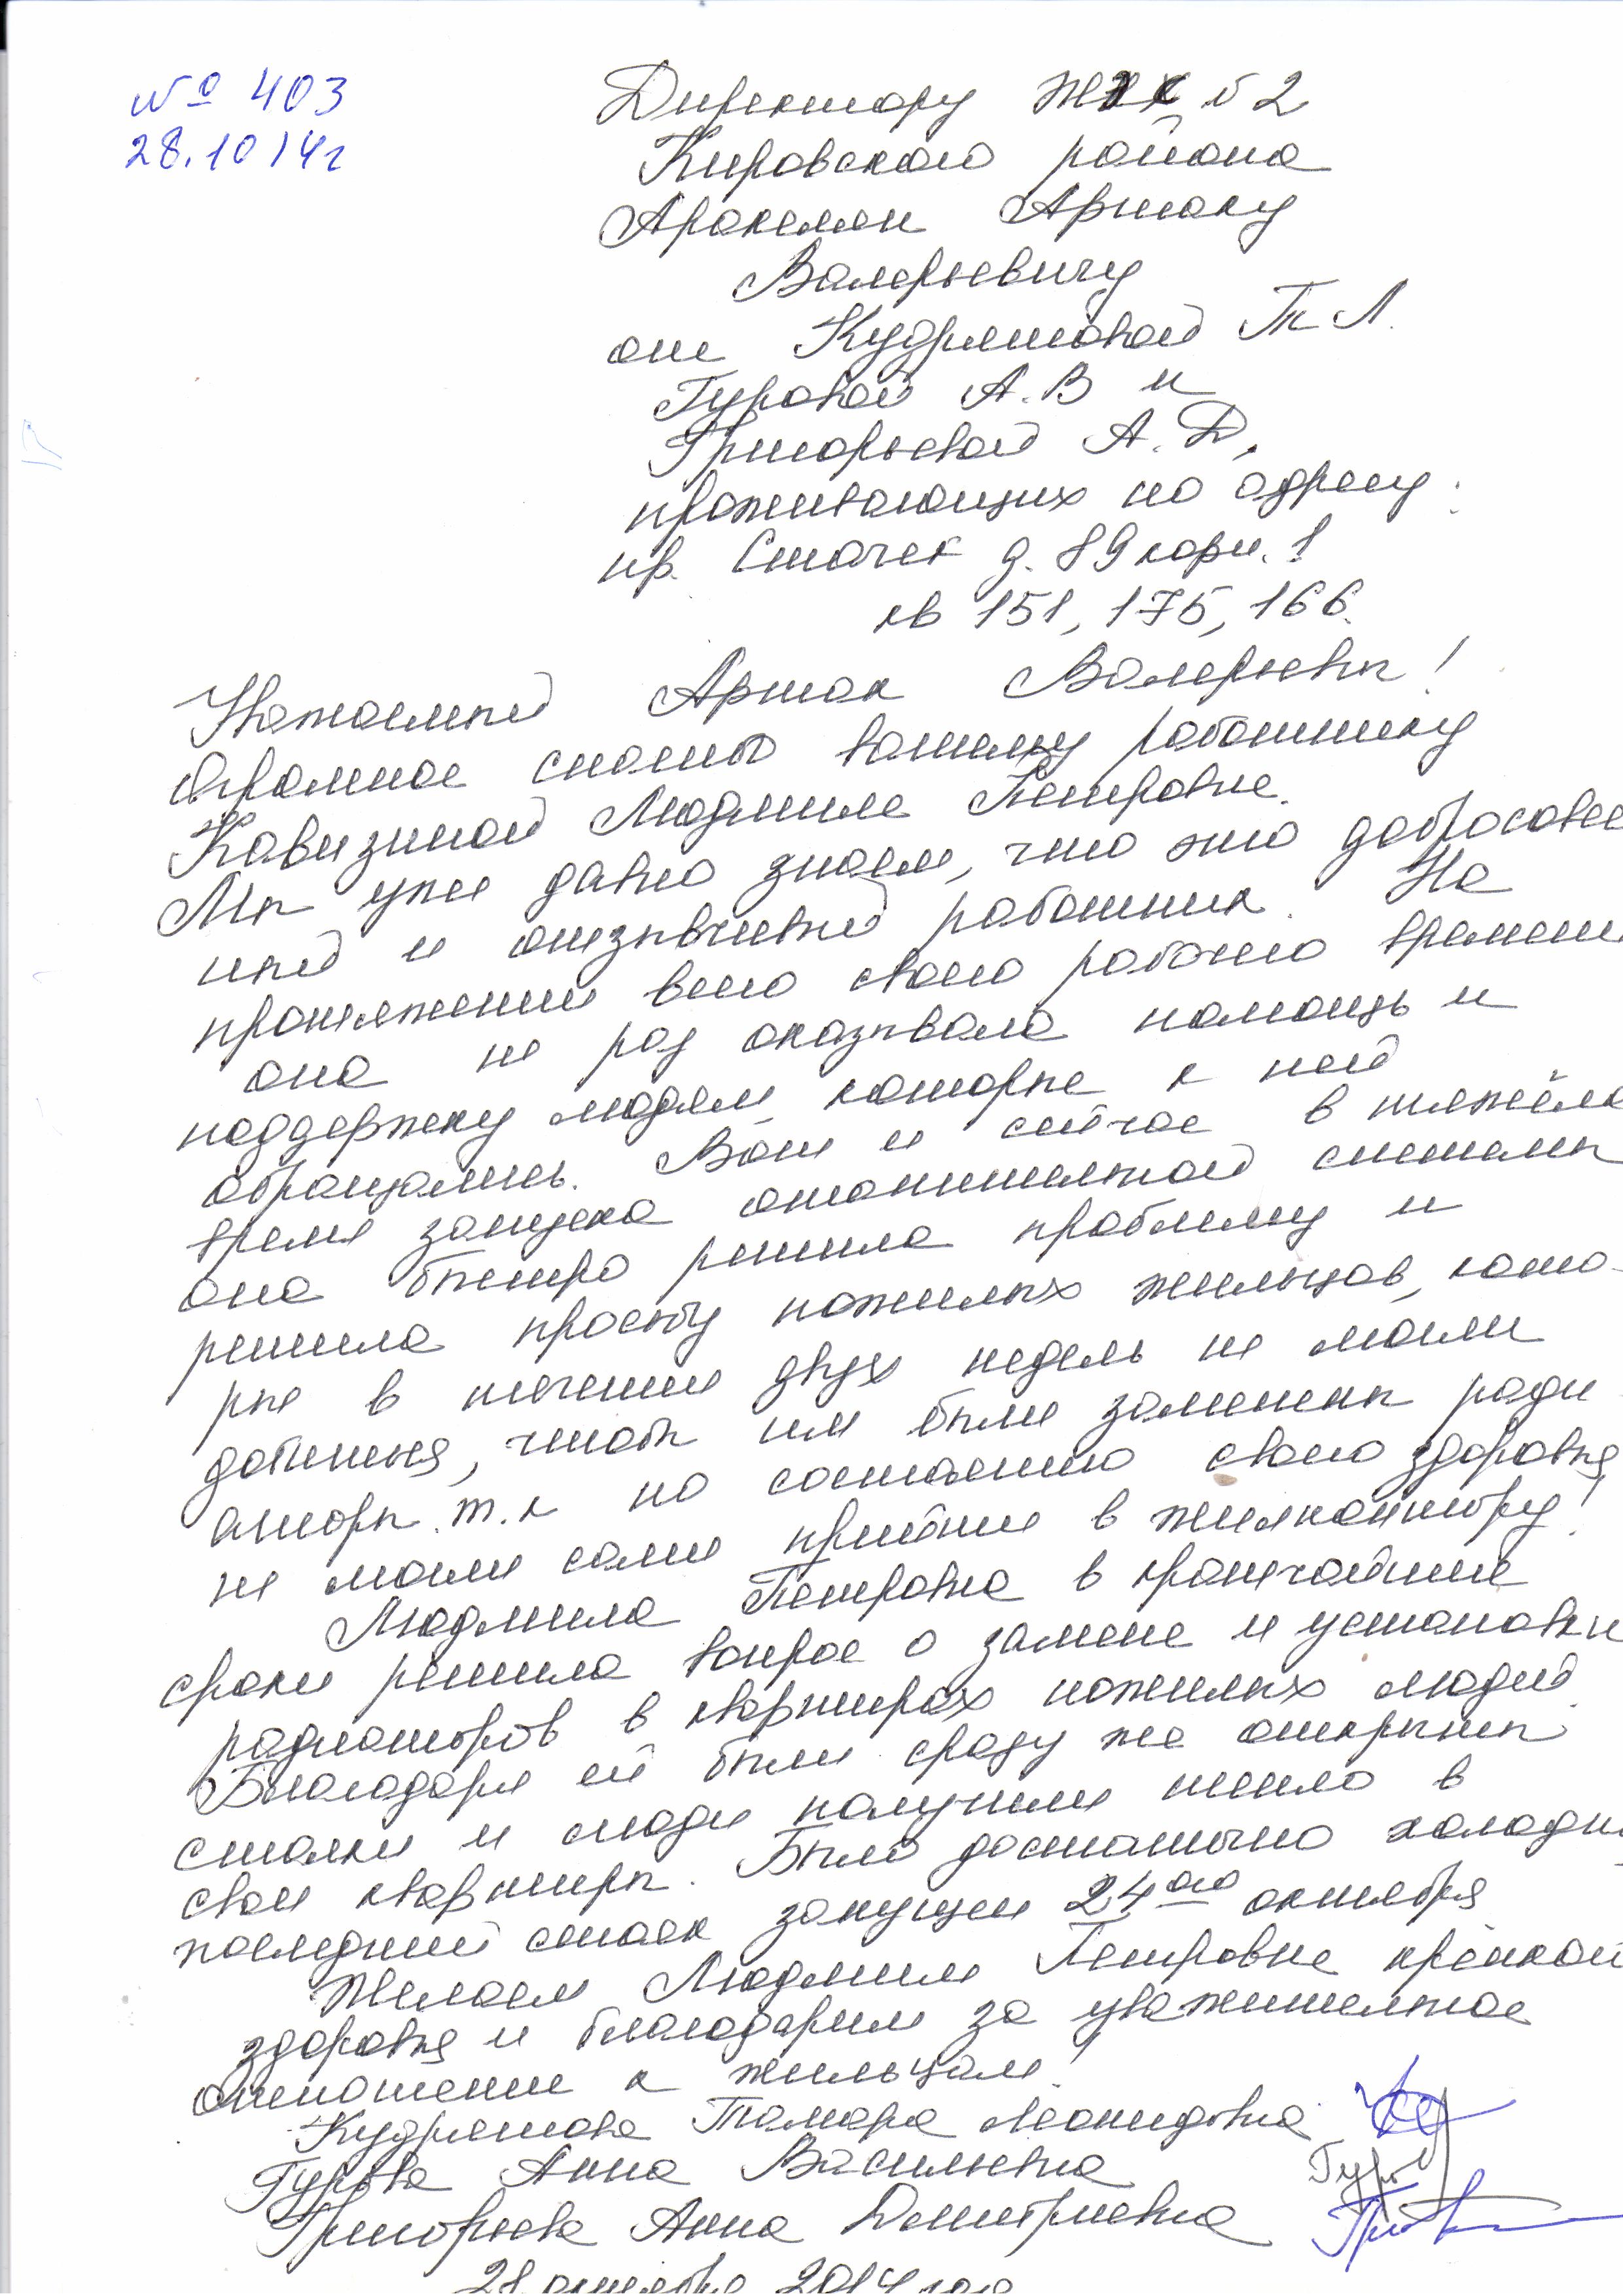 № 403
28.10 14г
Директору ЖКС №2
Кировского района
Аракелян Аршаку
Валерьевичу
от Кудряшовой Т Л.
Гуровой А. В и
Григорьевой А. Д,
проживающих по адресу:
пр. Стачек д. 89 корп. 1
кв 151, 175, 166.
Уважаемый Аршак Валерьевич!
Огромное спасибо вашему работнику
Кавизиной Людмиле Петровне.
Мы уже давно знаем, что это добросовес
ный и отзывчивый работник. На
протяжении всего своего рабочего времени
она не раз оказывала помощь и
поддержку людям, которые к ней
обращались. Вот и сейчас в тяжёлое
время запуска отопительной системы
она быстро решила проблему и
решила просьбу пожилых жильцов, кото-
рые в течении двух недель не могли
добиться, чтобы им были заменены ради
аторы. т. к по состоянию своего здоровья
не могли сами прийти в жилконтору!
Людмила Петровна в кратчайшие
сроки решила вопрос о замене и установки
радиаторов в квартирах пожилых людей.
Благодаря ей были сразу же открыты
стояки и люди получили тепло в
свои квартиры. Было достаточно холодно
последний стояк запущен 24ого октября
Желаем Людмиле Петровне крепкого
здоровья и благодарим за уважительное
отношение к жильцам!
Кудряшова Тамара Леонидовна
Гурова Анна Васильевна
Гуров
Григорьева Анна Дмитриевна
28 октября 2014 года